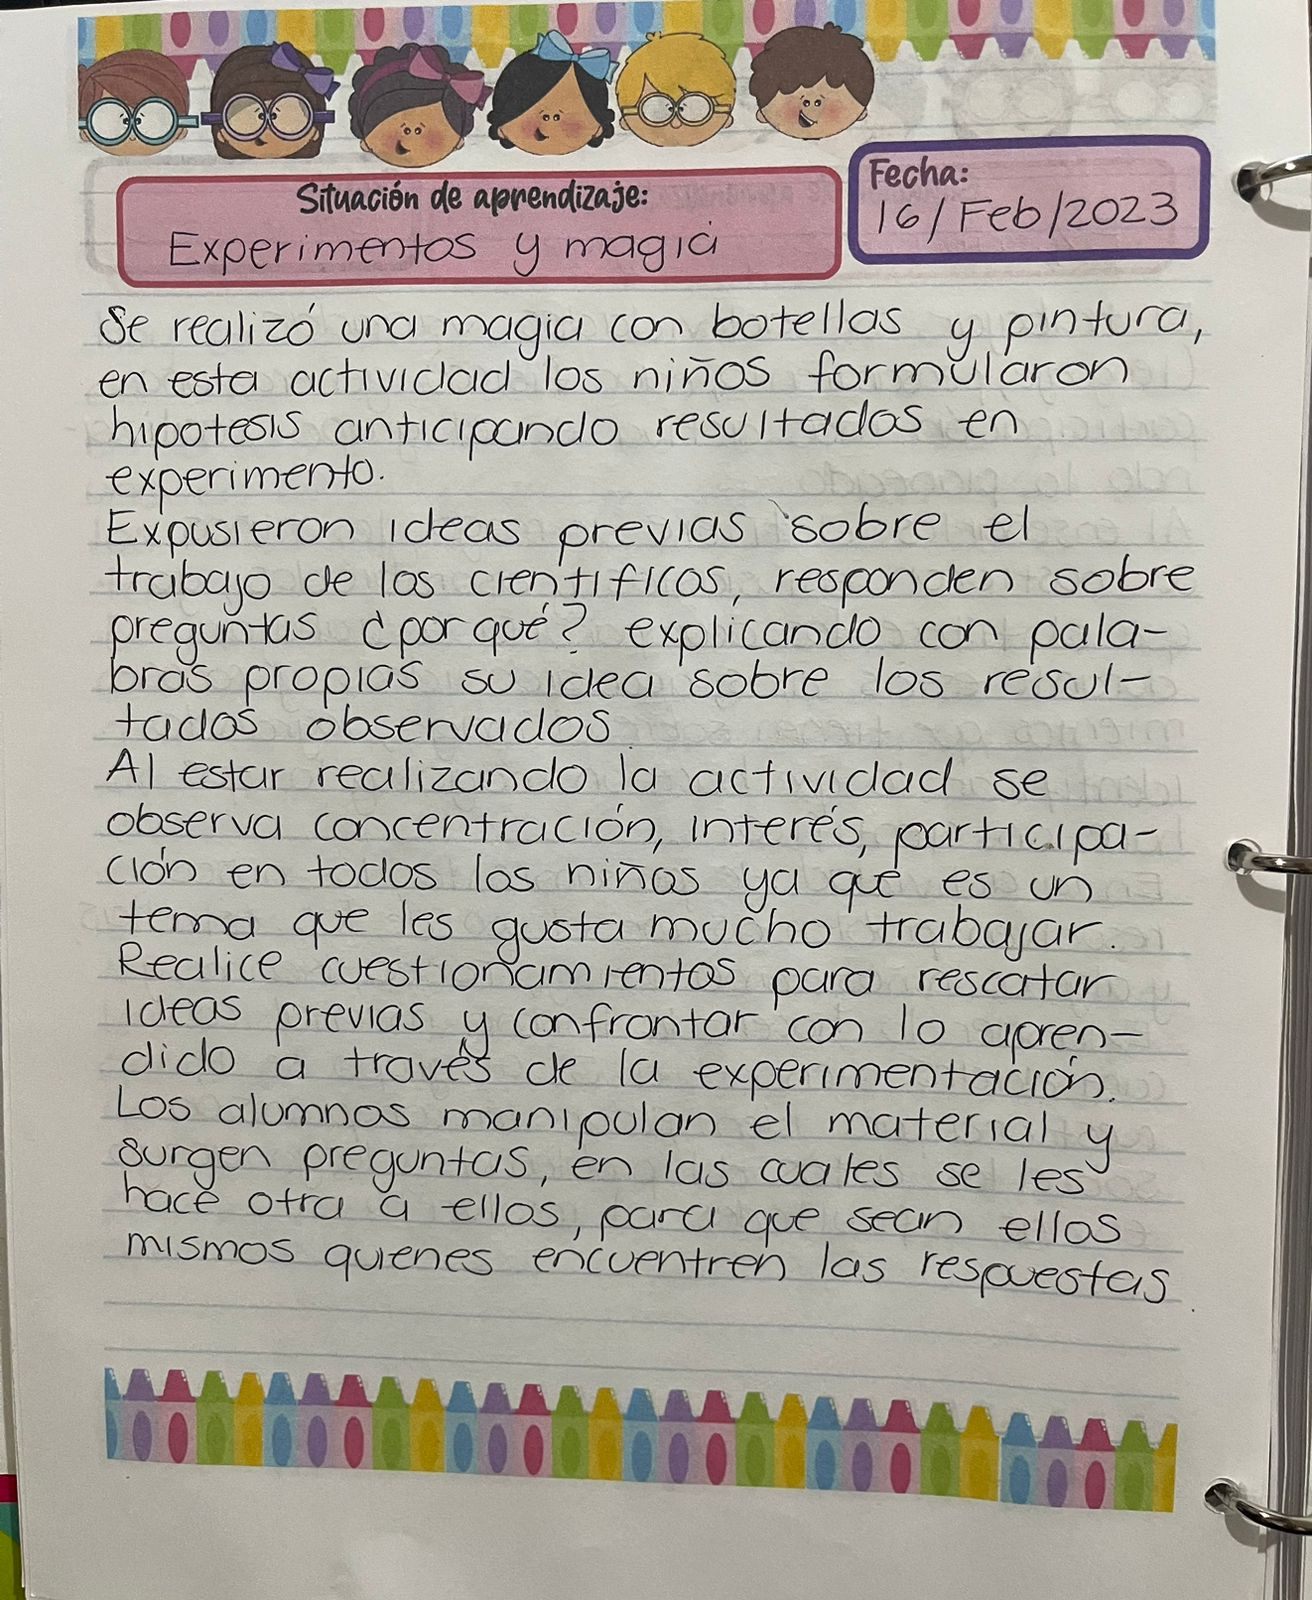 Situación de aprendizaje:
Experimentos y magia
Fecha:
16/Feb/2023
Se realizó una magia con botellas y pintura,
en esta actividad los niños formularon
hipotesis anticipando resultados en
experimento.
Expusieron ideas previas sobre el
trabajo de los cientificos, responden sobre
preguntas ¿por qué? explicando con pala-
bras propias su idea sobre los resul-
tados observados.
Al estar realizando la actividad se
observa concentración, interés, participa-
ción en todos los niños ya que es un
tema que les gusta mucho trabajar.
Realice cuestionamientos para rescatar
ideas previas y confrontar con lo apren-
dido a través de la experimentación.
Los alumnos manipulan el material y
surgen preguntas, en las cuales se les
hace otra a ellos, para que sean ellos
mismos quienes encuentren las respuestas.